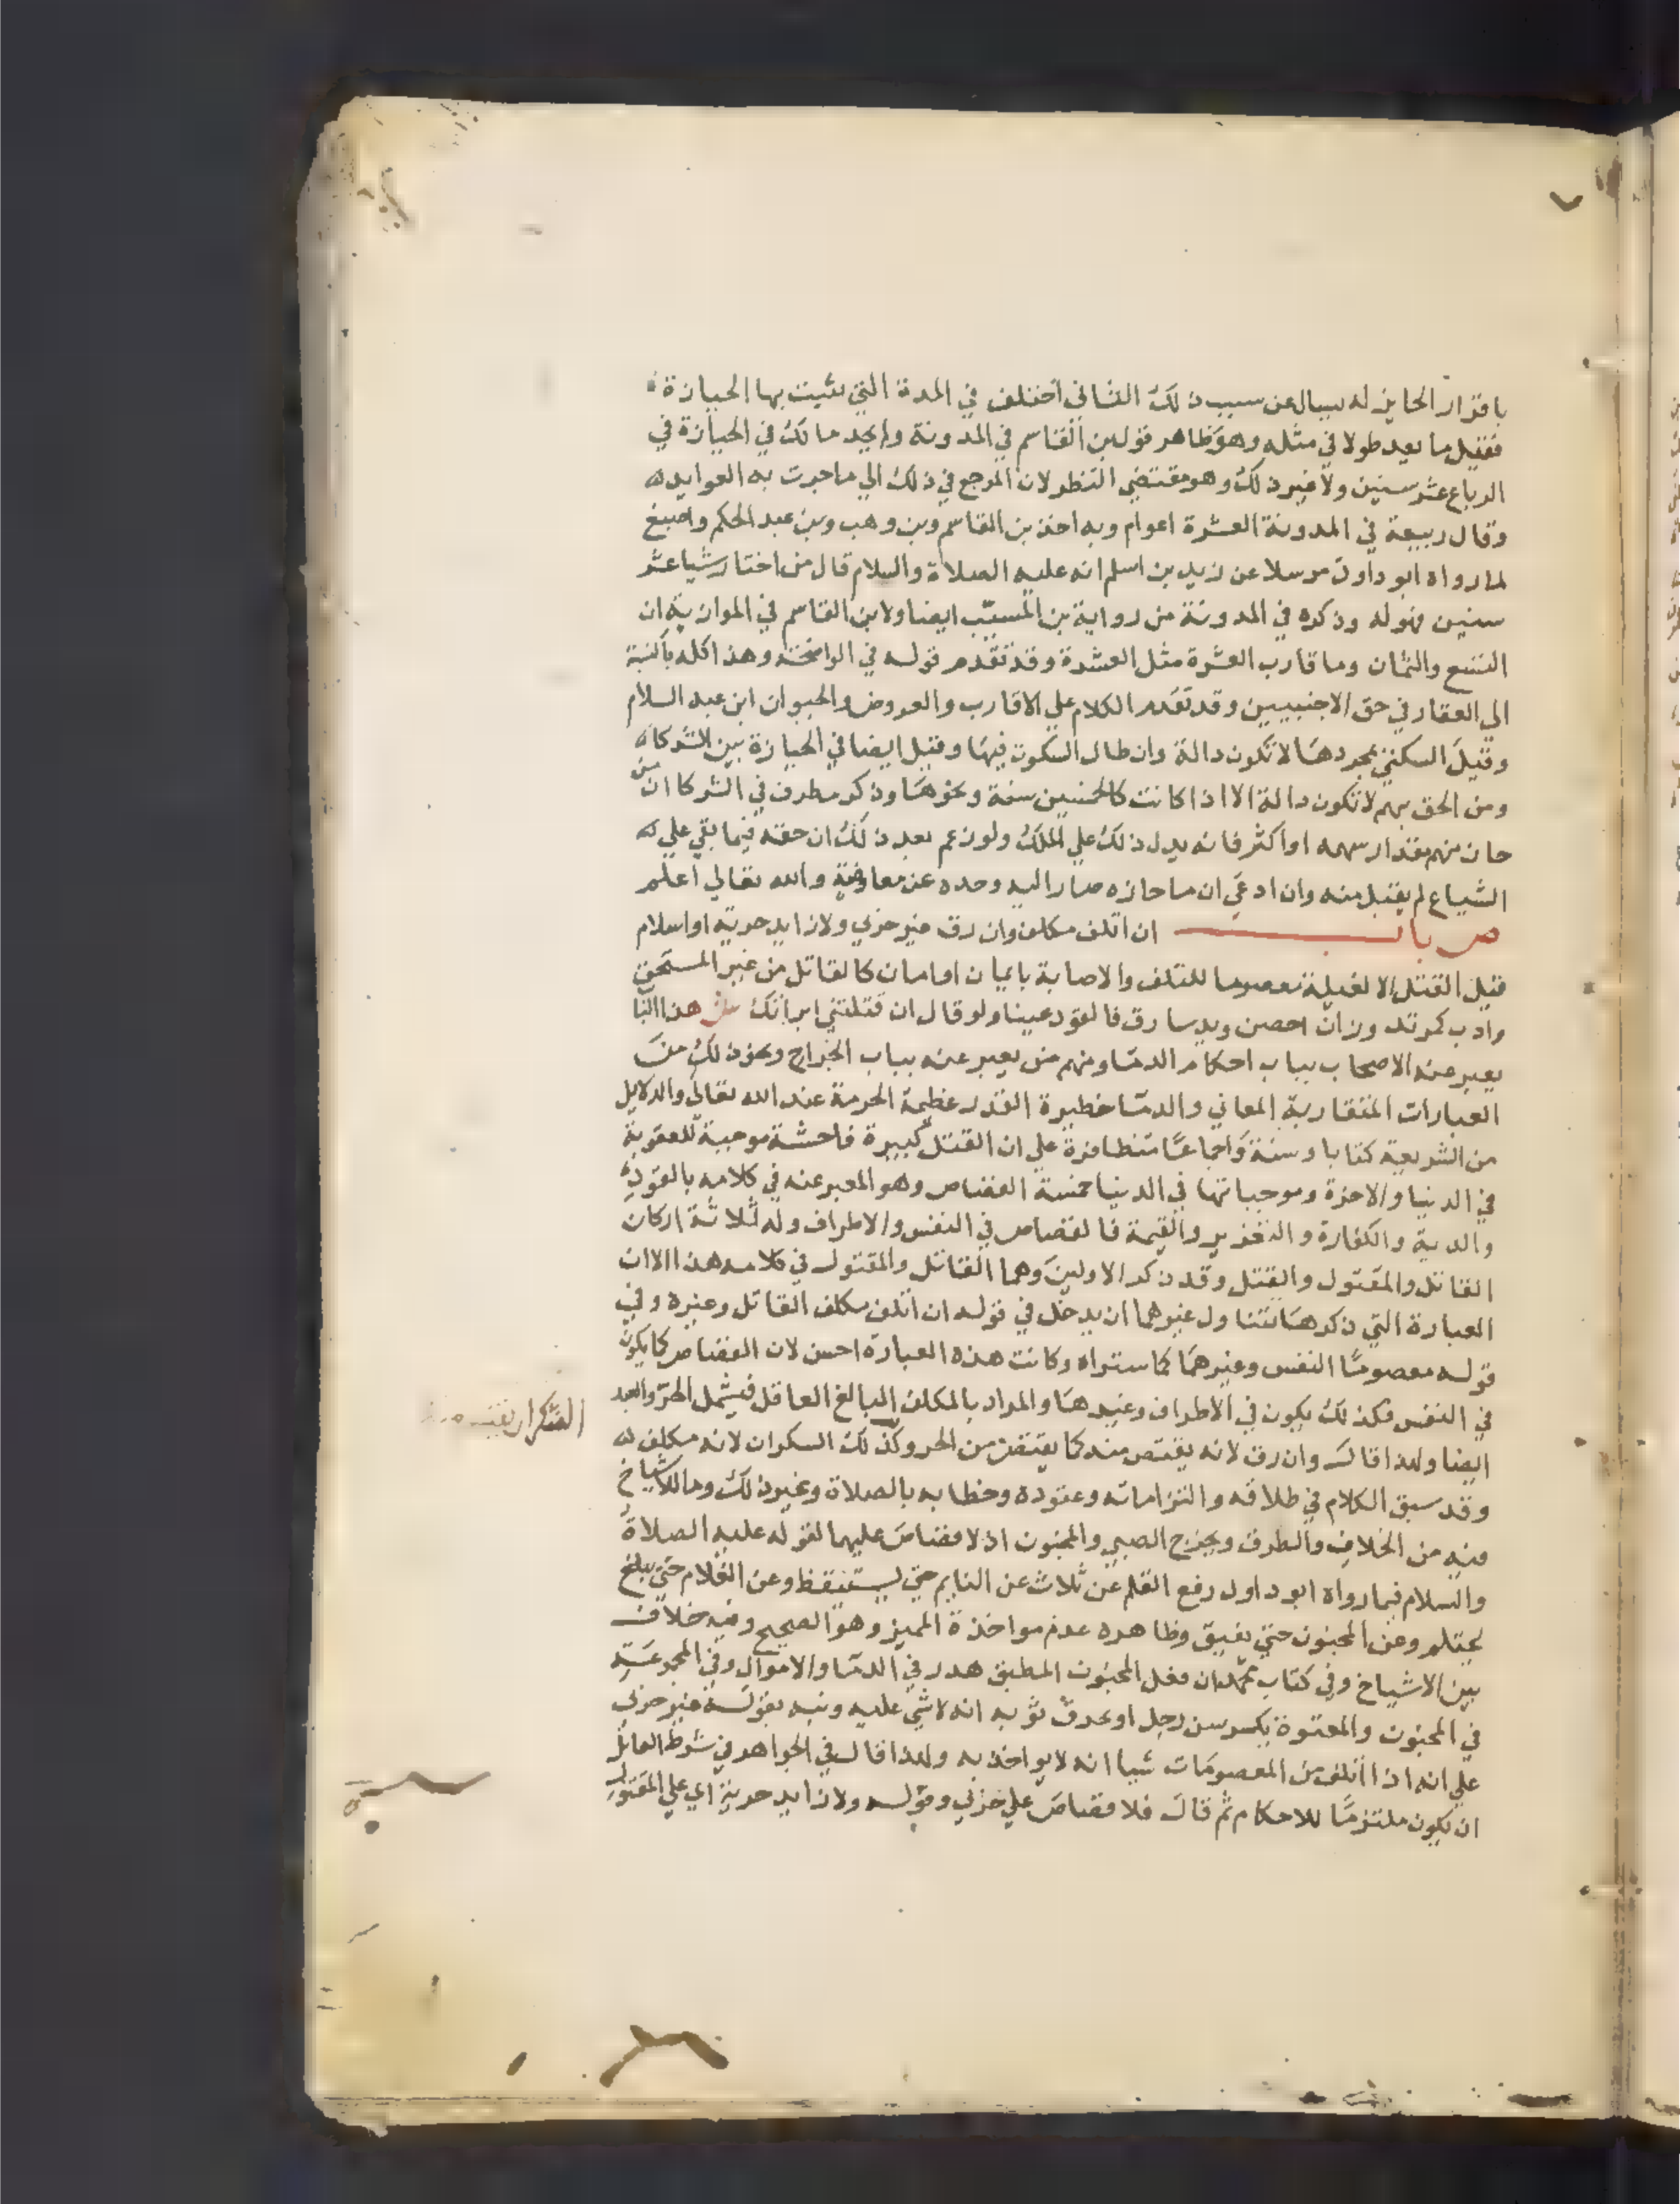 باقرار الحايز له يسال عن سبب ذلك الثاني اختلف في المدة التي تثبت بها الحيازة
فقيل ما يعد طولا في مثله وهو ظاهر قول بن القاسم في المدونة ولم يحد مالك في الحيازة في
الرباع عشر سنين ولا غير ذلك وهو مقتضي النظر لان المرجع في ذلك الي ما جرت به العوايد
وقال ربيعة في المدونة العشرة اعوام وبه اخذ بن القاسم وبن وهب وبن عبد الحكم واصبغ
لما رواه ابو داود مرسلا عن زيد بن اسلم انه عليه الصلاة والسلام قال من احتاز شيا عشر
سنين فهو له وذكره في المدونة من رواية بن المسيّب ايضا ولابن القاسم في الموازية ان
التسع والثمان وما قارب العشرة مثل العشرة وقد تقدم قوله في الواضحة وهذا كله بالنسبة
الي العقار في حق الاجنبيين وقد تقدم الكلام علي الاقارب والعروض والحيوان ابن عبد السلام
وقيل السكني بمجردها لا تكون دالة وان طال السكوت فيها وقيل ايضا في الحيازة بين الشركاء
ومن الحق بهم لا تكون دالة الا اذا كانت كالخمسين سنة ونحوها وذكر مطرف في الشركا ان من
حاز منهم مقدار سهمه او اكثر فانه يدل ذلك علي الملك ولو زعم بعد ذلك ان حقه فيما بقي علي
الشياع لم يقبل منه وان ادعي ان ما حازه صار اليه وحده عن معاوضة والله تعالي اعلم
ص باب ان اتلف مكلف وان رق غير حربي ولا زايد حرية او اسلام
قبل القتل الا لغيلة معصوما للتلف والاصابة بايمان او امان كالقاتل من غير المستحق
وادب كمرتد وزان احصن ويد سارق فالقود عينا ولو قال ان قتلتني ابراتك ش هذا البا
يعبر عنه الاصحاب بباب احكام الدما ومنهم من يعبر عنه بباب الجراح ونحو ذلك من
العبارات المتقاربة المعاني والدما خطيرة القدر عظيمة الحرمة عند الله تعالي والدلايل
من الشريعة كتابا وسنة واجماعًا متظافرة علي ان القتل كبيرة فاحشة موجبة للعقوبة
في الدنيا والاخرة وموجباتها في الدنيا خمسة القصاص وهو المعبر عنه في كلامه بالقود
والدية والكفارة والتعزير والقيمة فالقصاص في النفس والاطراف وله ثلاثة اركان
القاتل والمقتول والقتل وقد ذكر الاولين وهما القاتل والمقتول في كلامه هذا الا ان
العبارة التي ذكرها تتناول غيرهما ان يدخل في قوله ان اتلف مكلف القاتل وغيره وفي
قوله معصومًا النفس وغيرها كما ستراه وكانت هذه العبارة احسن لان القصاص كما يكون
في النفس فكذلك يكون في الاطراف وغيرها والمراد بالمكلف البالغ العاقل فيشمل الحر والعبد
ايضا ولهذا قال وان رق لانه يقتص منه كما يقتص من الحر وكذلك السكران لانه مكلف
السكران يقتص منه
وقد سبق الكلام في طلاقه والتزاماته وعقوده وخطابه بالصلاة وغير ذلك وما للاشياخ
فيه من الخلاف والطرق ويخرج الصبي والمجنون اذ لا قصاص عليهما لقوله عليه الصلاة
والسلام فيما رواه ابو داود رفع القلم عن ثلاث عن النايم حتي يستيقظ وعن الغلام حتي يبلغ
يحتلم وعن المجنون حتي يفيق وظاهره عدم مواخذة المميز وهو الصحيح وفيه خلاف
بين الاشياخ وفي كتاب محمد ان فعل المجنون المطبق هدر في الدما والاموال وفي المجموعة
في المجنون والمعتوه يكسر سن رجل او يحرق ثوبه انه لا شي عليه ونبه بقوله غير حربي
علي انه اذا اتلف من المعصومات شيا انه لا يواخذ به ولهذا قال في الجواهر في شرط القاتل
ان يكون ملتزمًا للاحكام ثم قال فلا قصاص علي حربي وقوله ولا زايد حرية اي علي المقتول